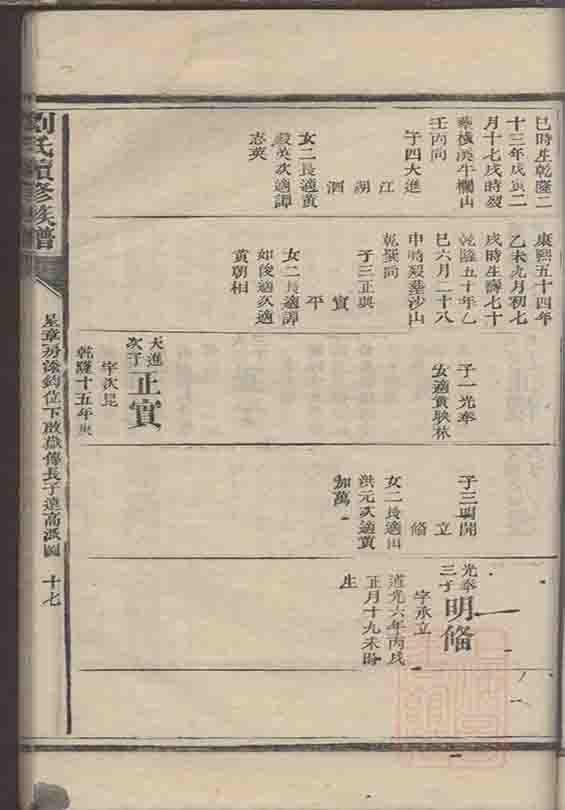 巳時生乾隆二
十三年戊寅二
月十七戌時歿
葬橫溪牛欄山
壬丙向
子四大進
江
湖
泗
女二長適黃
毅英次適譚
志英
康熙五十四年
乙未九月初七
戌時生壽七十
乾隆五十年乙
巳六月二十八
申時歿葬沙山
乾巽向
子三正與
實
平
女二長適譚
如俊適次適
黃朝相
子一光奉
女適黃映林
大進
次子
正實
字次昆
乾隆十五年庚
子三明開
立
脩
女二長適田
洪元次適黃
加萬
光奉
三子
明脩
字承立
道光六年丙戌
正月十九未時
生
劉氏續修族譜
星章房添鈞位下啟嶽傳長子達高派圖
十七